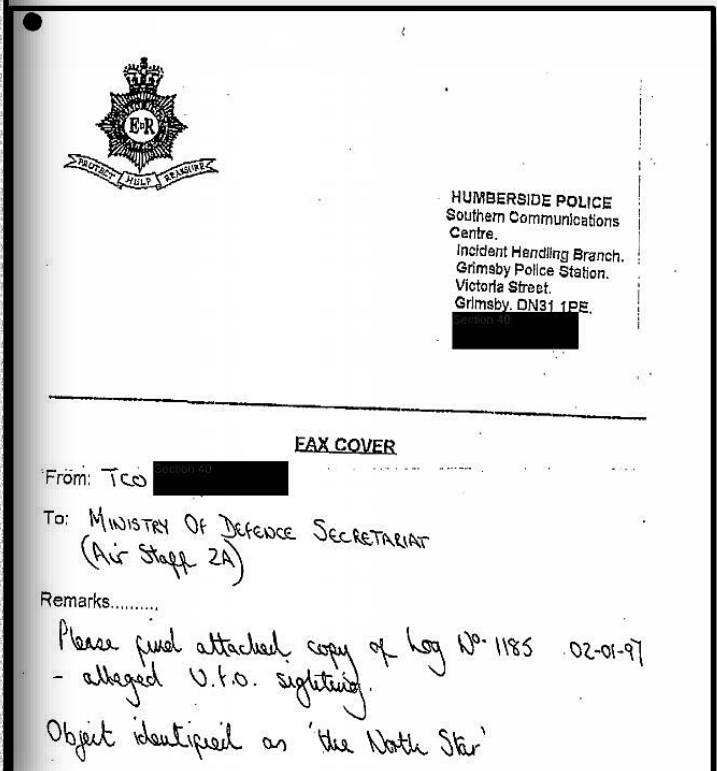 E R
PROTECT HELP REASSURE
HUMBERSIDE POLICE
Southern Communications
Centre.
Incident Handling Branch.
Grimsby Police Station.
Victoria Street.
Grimsby. DN31 1PE.
Section 40
FAX COVER
From: TCO Section 40
To: MINISTRY OF DEFENCE SECRETARIAT
(Air Staff 2A)
Remarks..........
Please find attached copy of Log No. 1185 02-01-97
- alleged U.F.O. sighting.
Object identified as 'the North Star'